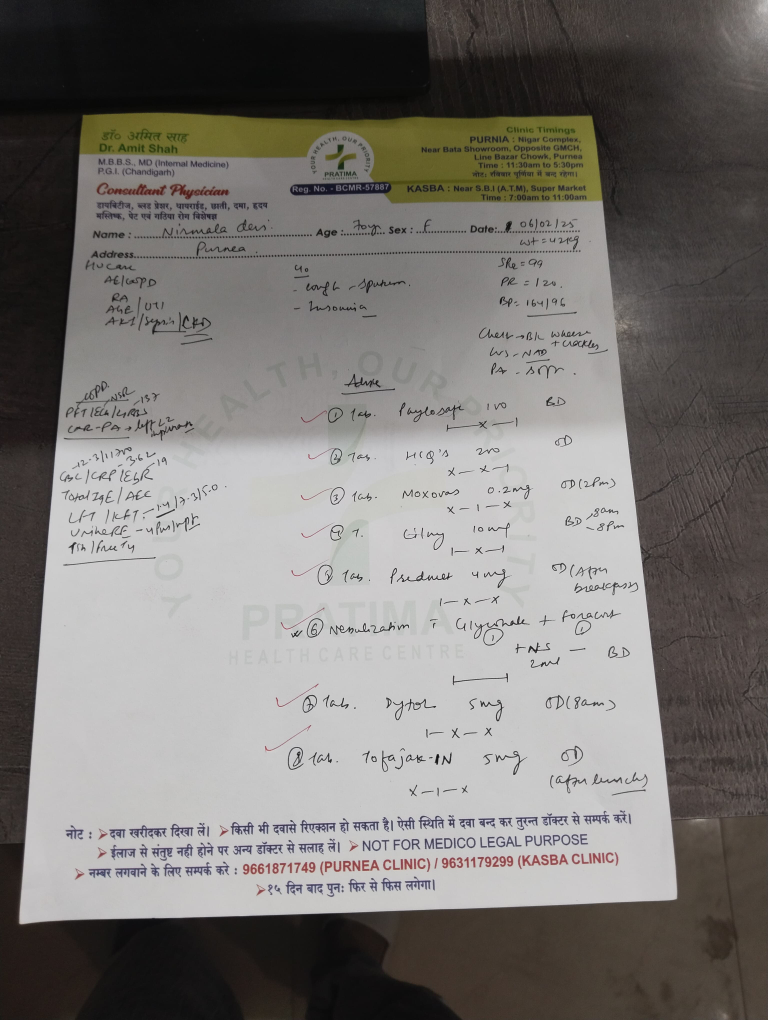 डॉ० अमित साह
Dr. Amit Shah
M.B.B.S., MD (Internal Medicine)
P.G.I. (Chandigarh)
Consultant Physician
डायबिटीज, ब्लड प्रेशर, थायराईड, छाती, दमा, हृदय
मस्तिष्क, पेट एवं गठिया रोग विशेषज्ञ
YOUR HEALTH, OUR PRIORITY
PRATIMA
Reg. No. - BCMR-57887
Clinic Timings
PURNIA : Nigar Complex,
Near Bata Showroom, Opposite GMCH,
Line Bazar Chowk, Purnea
Time : 11:30am to 5:30pm
नोट: रविवार पूर्णिया में बन्द रहेगा।
KASBA : Near S.B.I (A.T.M), Super Market
Time : 7:00am to 11:00am
Name : Nirmala devi Age : 70y Sex : F Date: 06/02/25
Address Purnea
wt = 42kg
SPO2 = 99
PR = 120
BP = 164/96
- cough - sputum
- Insomnia
RA
CKD
Chest → B/L wheeze + crackles
PA - soft
COPD
NSR
12.3/11700
3.62
19
CBC/CRP/ESR
Total IgE/AEC
LFT/KFT - 1.4/7.3/5.0
TSH/Free T4
Advice
① Tab. 100 BD
1—x—1
② Tab. HCQ's 200 OD
x—x—1
③ Tab. Moxovas 0.2mg OD (2Pm)
x—1—x
④ T. 10mg BD 8am - 8Pm
1—x—1
⑤ Tab. Predmet 4mg OD (After breakfast)
1—x—x
⑥ Nebulization Glycohale + Foracort
① ①
+ NS 2ml — BD
⑦ Tab. Dytor 5mg OD (8am)
1—x—x
⑧ Tab. Tofajak-IN 5mg OD
(after lunch)
x—1—x
YOUR HEALTH, OUR PRIORITY
PRATIMA
HEALTH CARE CENTRE
नोट : ➢दवा खरीदकर दिखा लें। ➢किसी भी दवासे रिएक्शन हो सकता है। ऐसी स्थिति में दवा बन्द कर तुरन्त डॉक्टर से सम्पर्क करें।
➢ईलाज से संतुष्ट नही होने पर अन्य डॉक्टर से सलाह लें। ➢NOT FOR MEDICO LEGAL PURPOSE
➢नम्बर लगवाने के लिए सम्पर्क करे : 9661871749 (PURNEA CLINIC) / 9631179299 (KASBA CLINIC)
➢१५ दिन बाद पुनः फिर से फिस लगेगा।